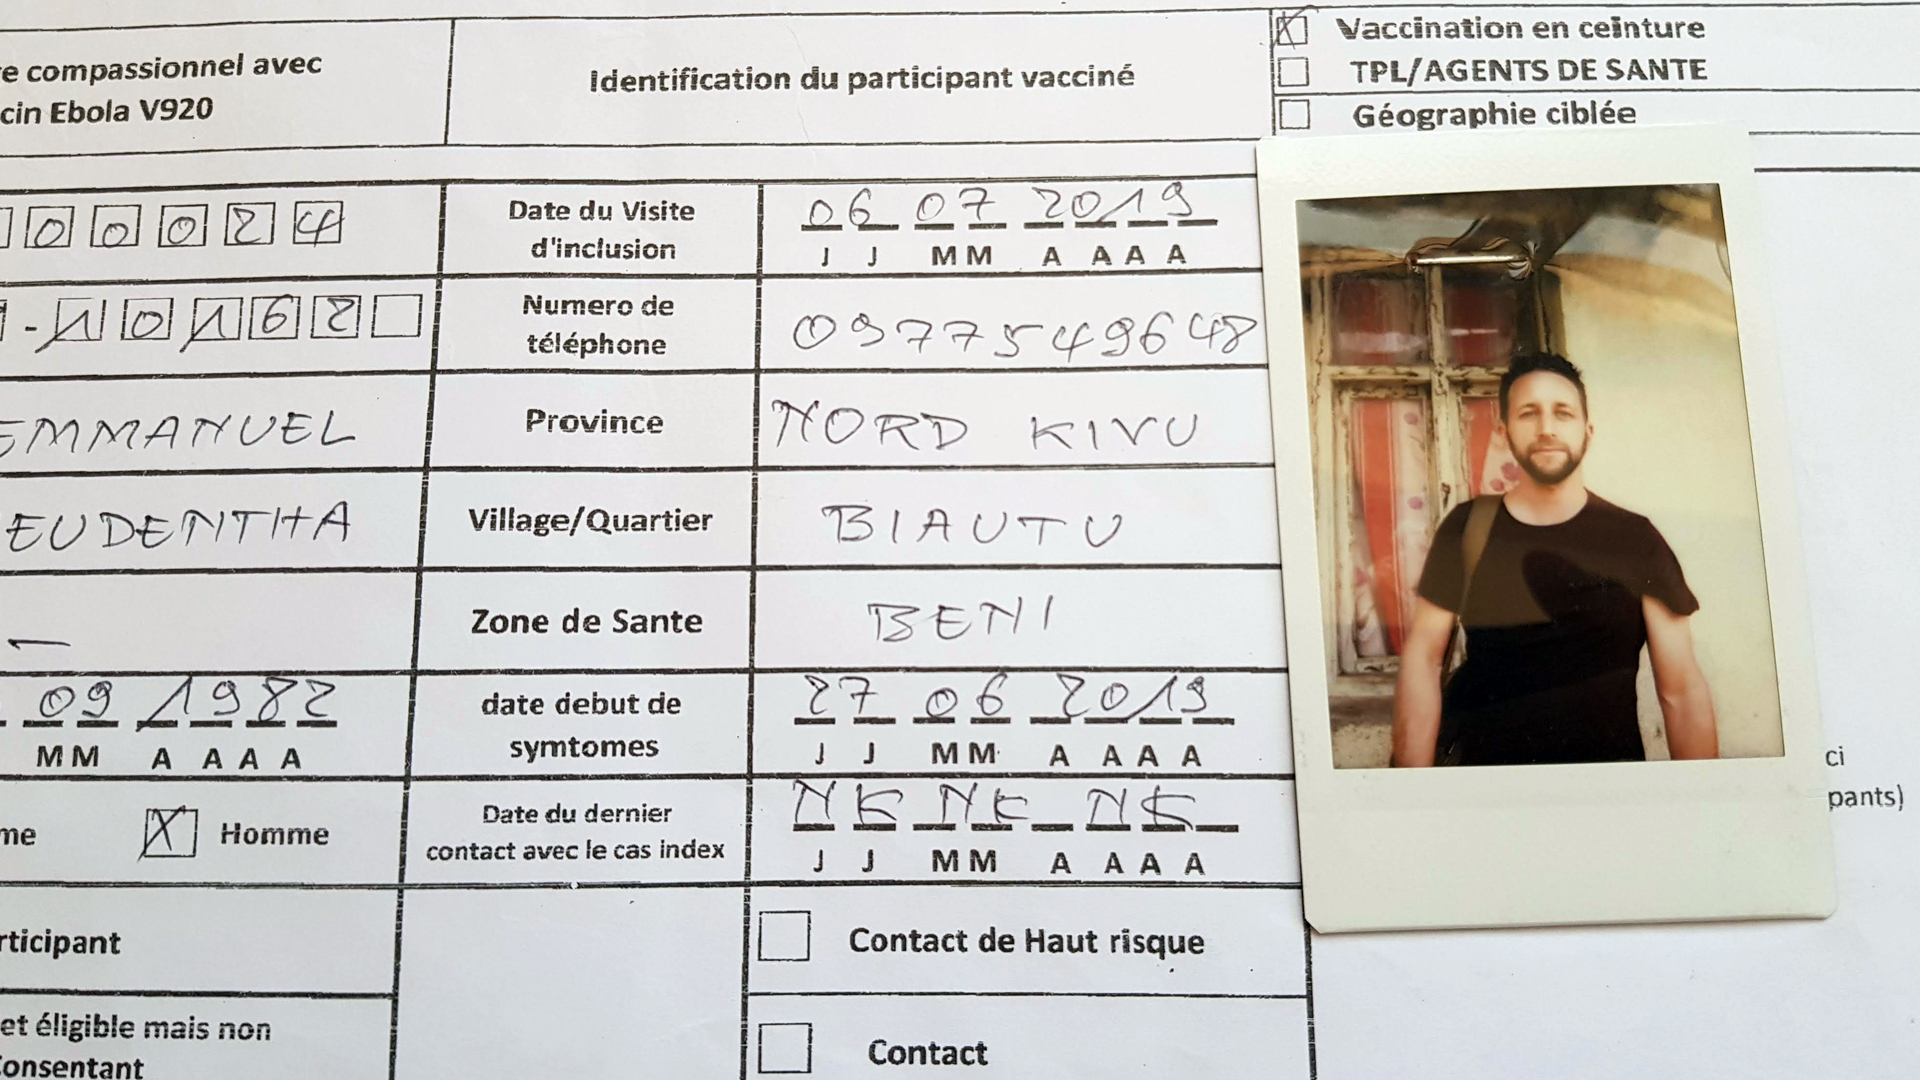 re compassionnel avec
cin Ebola V920
Identification du participant vacciné
Vaccination en ceinture
TPL/AGENTS DE SANTE
Géographie ciblée
0 0 0 2 4
Date du Visite
d'inclusion
06 07 2019
J J MM A A A A
- 1 0 1 6 2
Numero de
téléphone
0977549648
EMMANUEL
Province
NORD KIVU
EUDENTHA
Village/Quartier
BIAUTU
—
Zone de Sante
BENI
09 1982
MM A A A A
date debut de
symtomes
27 06 2019
J J MM A A A A
me X Homme
Date du dernier
contact avec le cas index
NK NK NK
J J MM A A A A
ci
pants)
rticipant
Contact de Haut risque
et éligible mais non
Consentant
Contact